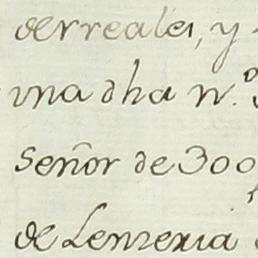 de rreales, y
una dha n.º
Señor de 300
de Lenzeria